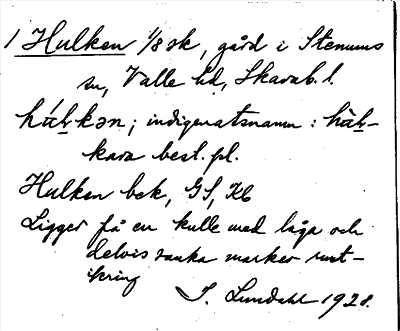 1 Hulken 1/8 sk, gård i Stenums
sn, Valle hd, Skarab. l.
indigenatsnamn :
kara best. pl.
Hulken bek, GS, Kb
Ligger på en kulle med låga och
delvis sanka marker runt-
ikring
S. Lundahl 1928.